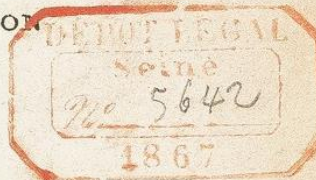 ON
DÉPOT LÉGAL
Seine
No 5642
1867